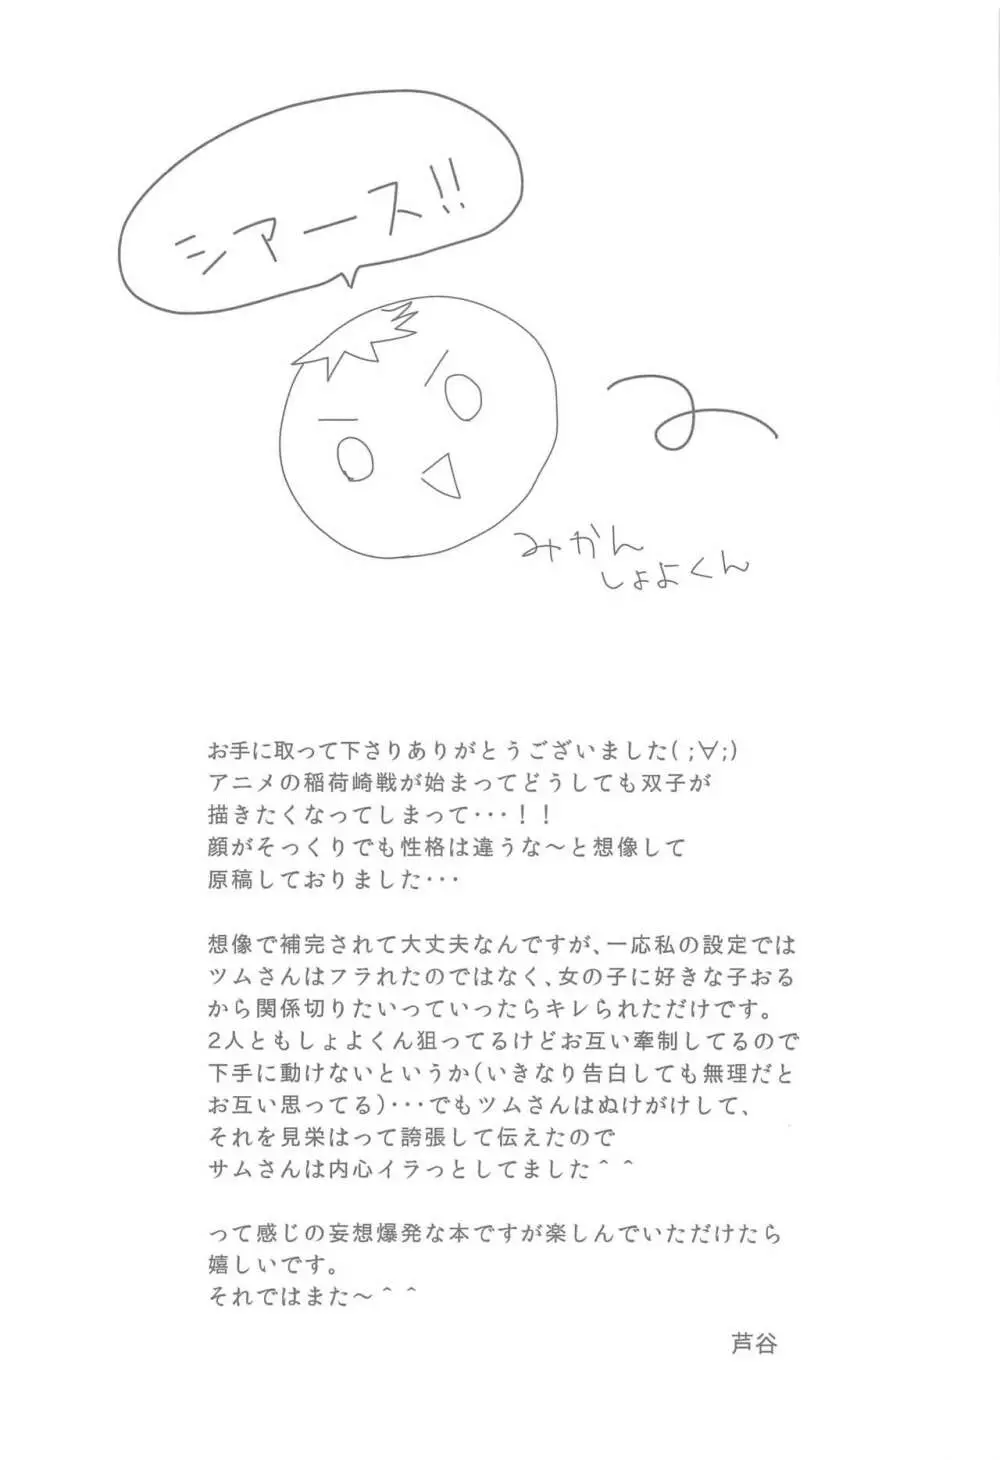 シアース!!
みかん
しょよくん
お手に取って下さりありがとうございました( ;∀;)
アニメの稲荷崎戦が始まってどうしても双子が
描きたくなってしまって･･･！！
顔がそっくりでも性格は違うな～と想像して
原稿しておりました･･･
想像で補完されて大丈夫なんですが、一応私の設定では
ツムさんはフラれたのではなく、女の子に好きな子おる
から関係切りたいっていったらキレられただけです。
2人ともしょよくん狙ってるけどお互い牽制してるので
下手に動けないというか(いきなり告白しても無理だと
お互い思ってる)･･･でもツムさんはぬけがけして、
それを見栄はって誇張して伝えたので
サムさんは内心イラっとしてました＾＾
って感じの妄想爆発な本ですが楽しんでいただけたら
嬉しいです。
それではまた～＾＾
芦谷